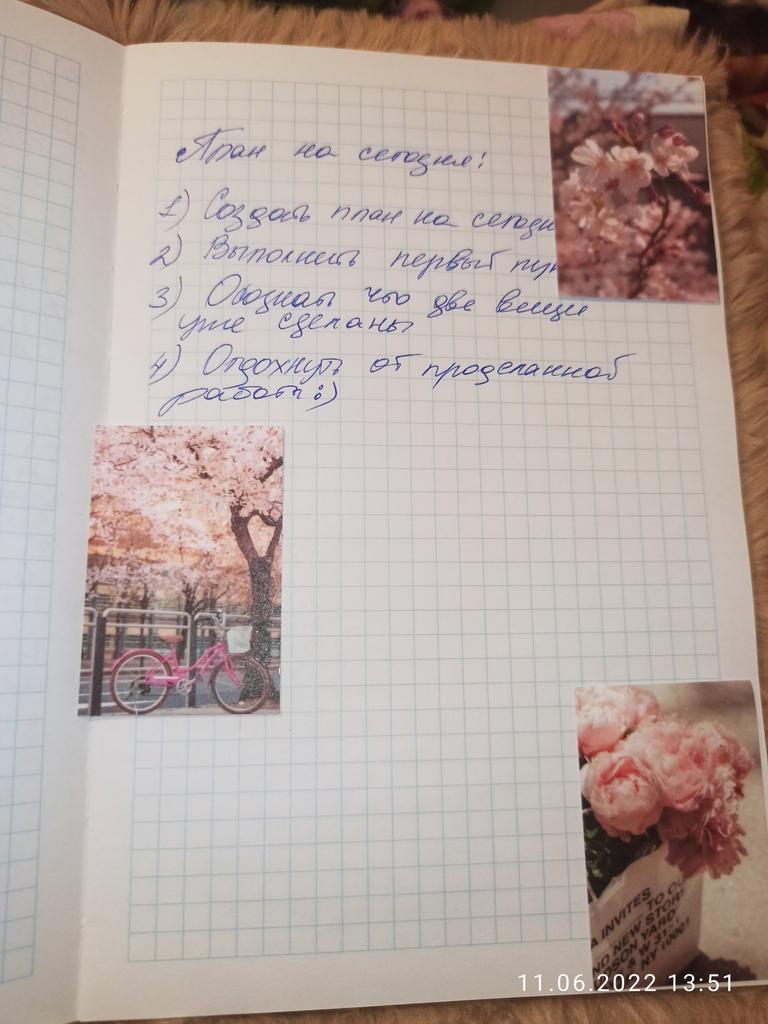 План на сегодня:
1) Создать план на сегодн
2) Выполнить первый пун
3) Осознать что две вещи
уже сделаны
4) Отдохнуть от проделанной
работы :)
A INVITES TO OU
ND NEW STOR
SON YARD
& W 31
NY 10001
11.06.2022 13:51